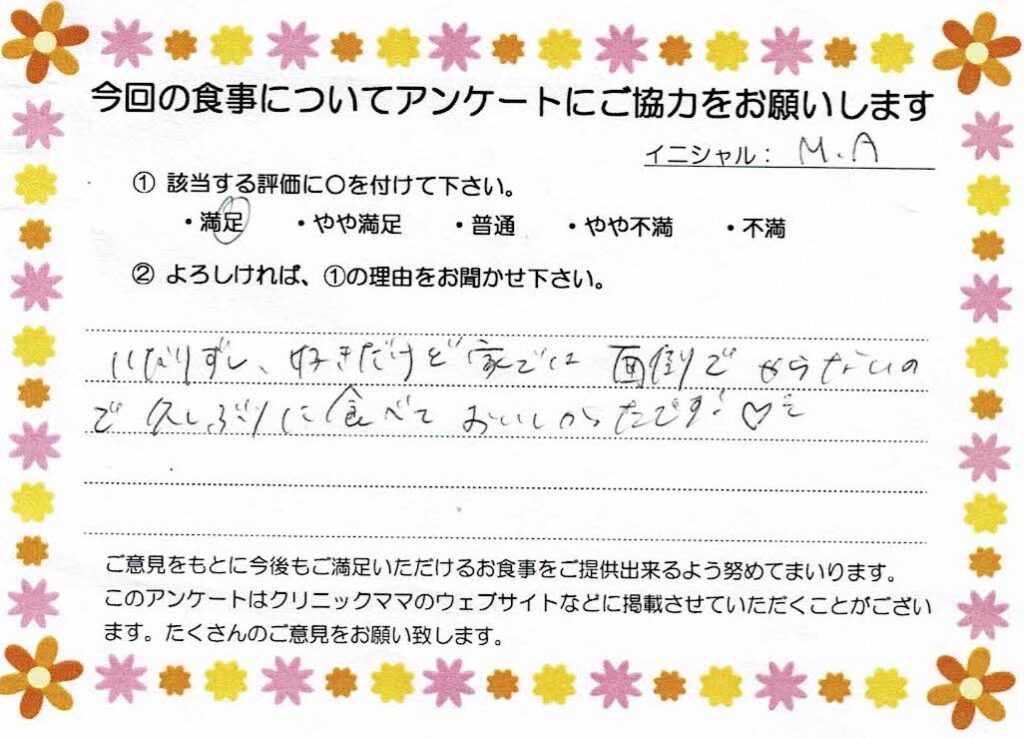 今回の食事についてアンケートにご協力をお願いします
イニシャル： M.A
① 該当する評価に〇を付けて下さい。
・満足 ・やや満足 ・普通 ・やや不満 ・不満
② よろしければ、①の理由をお聞かせ下さい。
いなりずし、好きだけど家では面倒でやらないの
で久しぶりに食べておいしかったです!♡
ご意見をもとに今後もご満足いただけるお食事をご提供出来るよう努めてまいります。
このアンケートはクリニックママのウェブサイトなどに掲載させていただくことがござい
ます。たくさんのご意見をお願い致します。